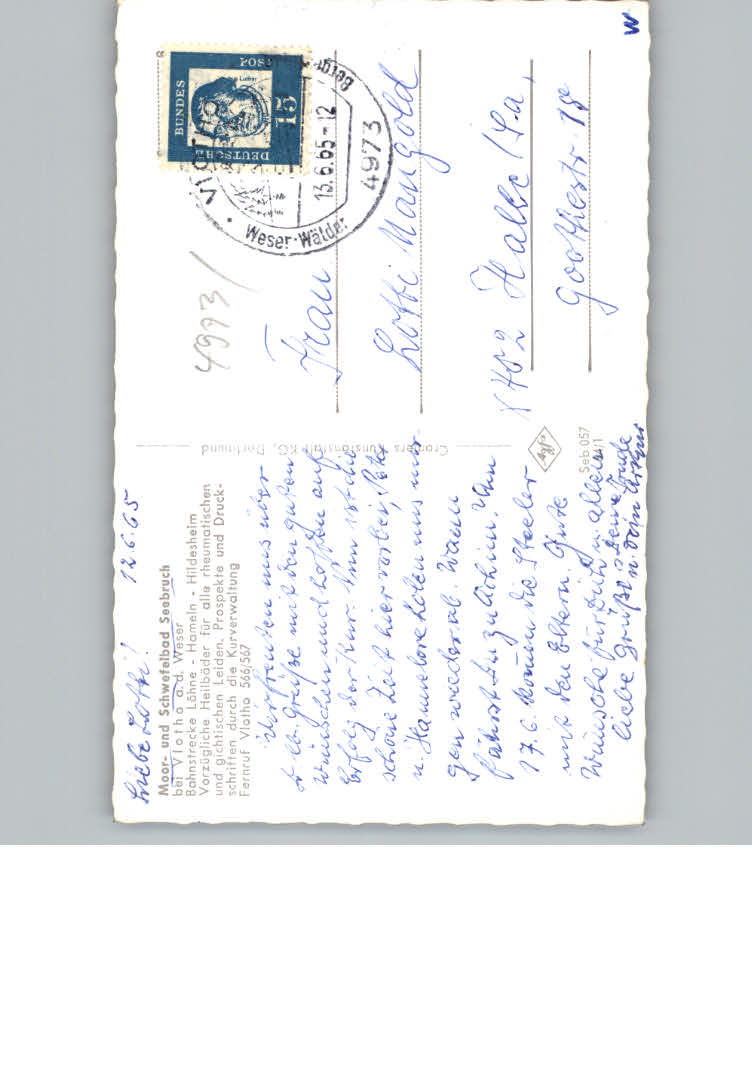 Liebe Lotti! 12.6.65
Moor- und Schwefelbad Seebruch
bei Vlotho a. d. Weser
Bahnstrecke Löhne - Hameln - Hildesheim
Vorzügliche Heilbäder für alle rheumatischen
und gichtischen Leiden. Prospekte und Druck-
schriften durch die Kurverwaltung
Fernruf Vlotho 566/567
Wir freuten uns über
d. lb. Grüße mit den guten
Wünschen und hoffen auf
Erfolg der Kur. Nun ist die
schöne Zeit hier vorbei,
u. Hannelore holen uns mor-
gen wieder ab. Wann
fährst Du zu Achim. Am
17.6. kommen die
mit den Eltern. Gute
Wünsche für Dich u. allen
liebe Grüße Deine
u. Dein
Cramers Kunstanstalt KG, Dortmund
Agfa
Seb 057
/1
DEUTSCHE
BUNDES
POST
15
Luther
VLOTHO
13.6.65-12
4973
Weser-Wälder
4973
Frau
Lotti Mangold
X 402 Halle/Sa.
Goethestr. 18
W